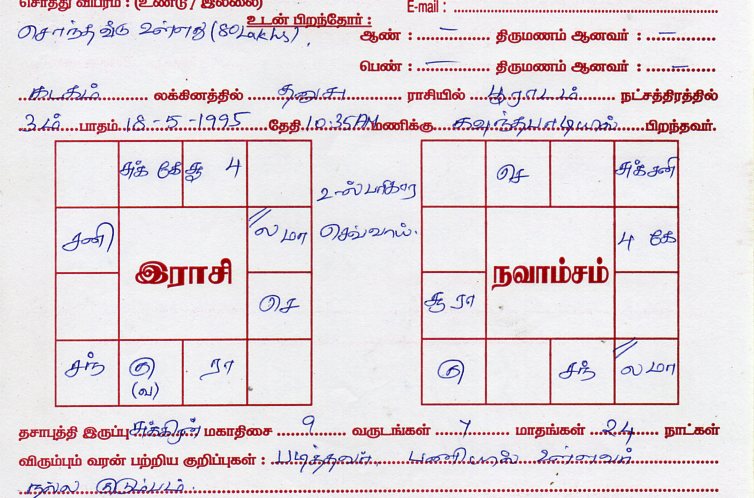 சொத்து விபரம் : (உண்டு / இல்லை) E-mail :
உடன் பிறந்தோர் :
சொந்த வீடு உள்ளது (80 Lakhs). ஆண் : — திருமணம் ஆனவர் : —
பெண் : — திருமணம் ஆனவர் : —
கடகம் லக்கினத்தில் தனுசு ராசியில் பூராடம் நட்சத்திரத்தில்
3ம் பாதம் 18-5-1995 தேதி 10:35AM மணிக்கு கவுந்தபாடியில் பிறந்தவர்.
சுக் கே சூ 4
சனி
ல மா
செ
சந்
கு
(வ)
ரா
இராசி
பரிகார
செவ்வாய்.
செ
சுக் சனி
4 கே
சூ ரா
கு
சந்
ல மா
நவாம்சம்
தசாபுத்தி இருப்பு சுக்கிரன் மகாதிசை 9 வருடங்கள் 7 மாதங்கள் 24 நாட்கள்
விரும்பும் வரன் பற்றிய குறிப்புகள் : படித்தவர், பணியில் உள்ளவர்
நல்ல குடும்பம்.